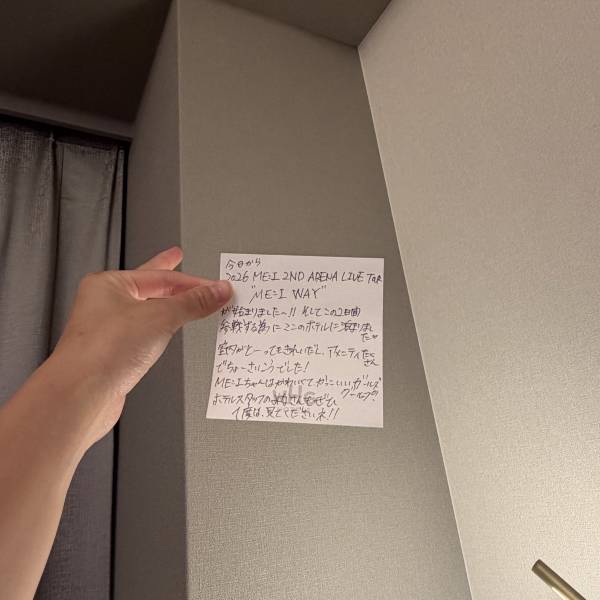 今日から
2026 ME:I 2ND ARENA LIVE TOUR
"ME:I WAY"
が始まりました〜!! そしてこの2日間
参戦する為にここのホテルに泊まりまし
た♡
室内がとーってもきれいだし、アメニティたくさん
でちょーさいこうでした!
ME:Iちゃんはかわいくてかっこいいガールズ
グループで、
ホテルスタッフのみなさんもぜひ
1度は、見てくださいネ!!